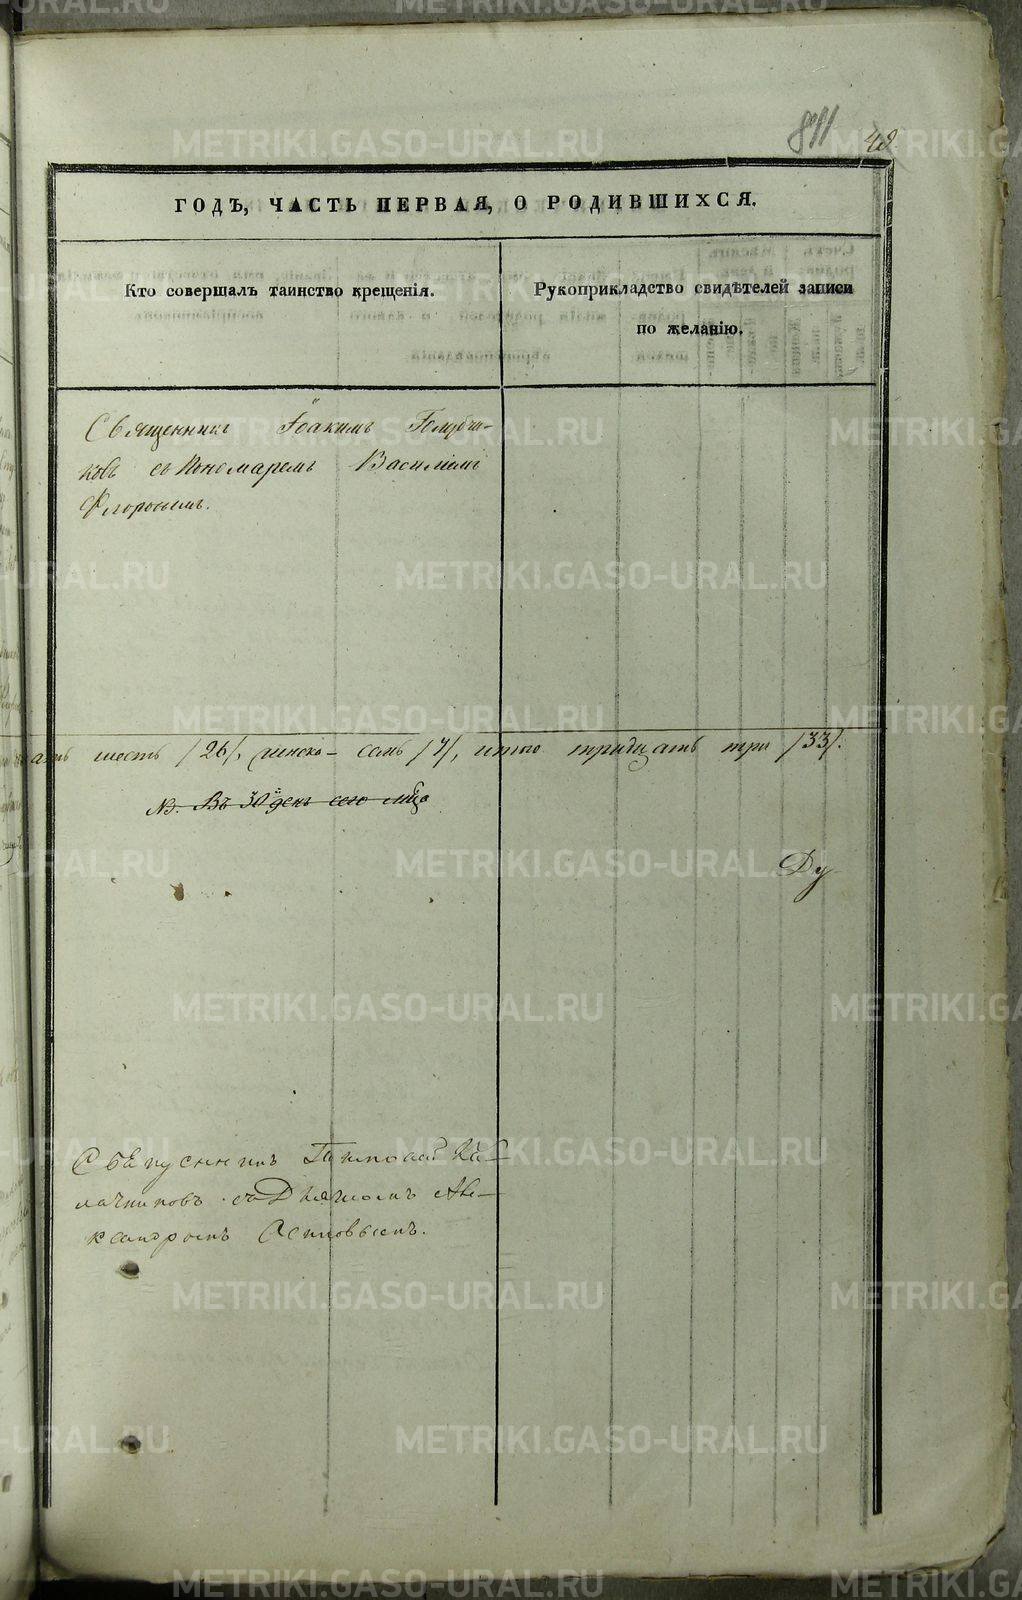 811 49.
ГОДЪ, ЧАСТЬ ПЕРВАЯ, О РОДИВШИХСЯ.
Кто совершалъ таинство крещенія.
Рукоприкладство свидѣтелей записи
по желанію.
Священникъ Іоакимъ Голуби-
ковъ съ Пономаремъ Василіемъ
Флоровымъ.
ать шесть /26/, женска – семь /7/, итого тридцать три /33/.
№. Въ 30й день сего мѣсяца
Ду
Священникъ Тимофей Ка-
лачниковъ съ Дьячкомъ Але-
ксандромъ Осиповымъ.
METRIKI.GASO-URAL.RU